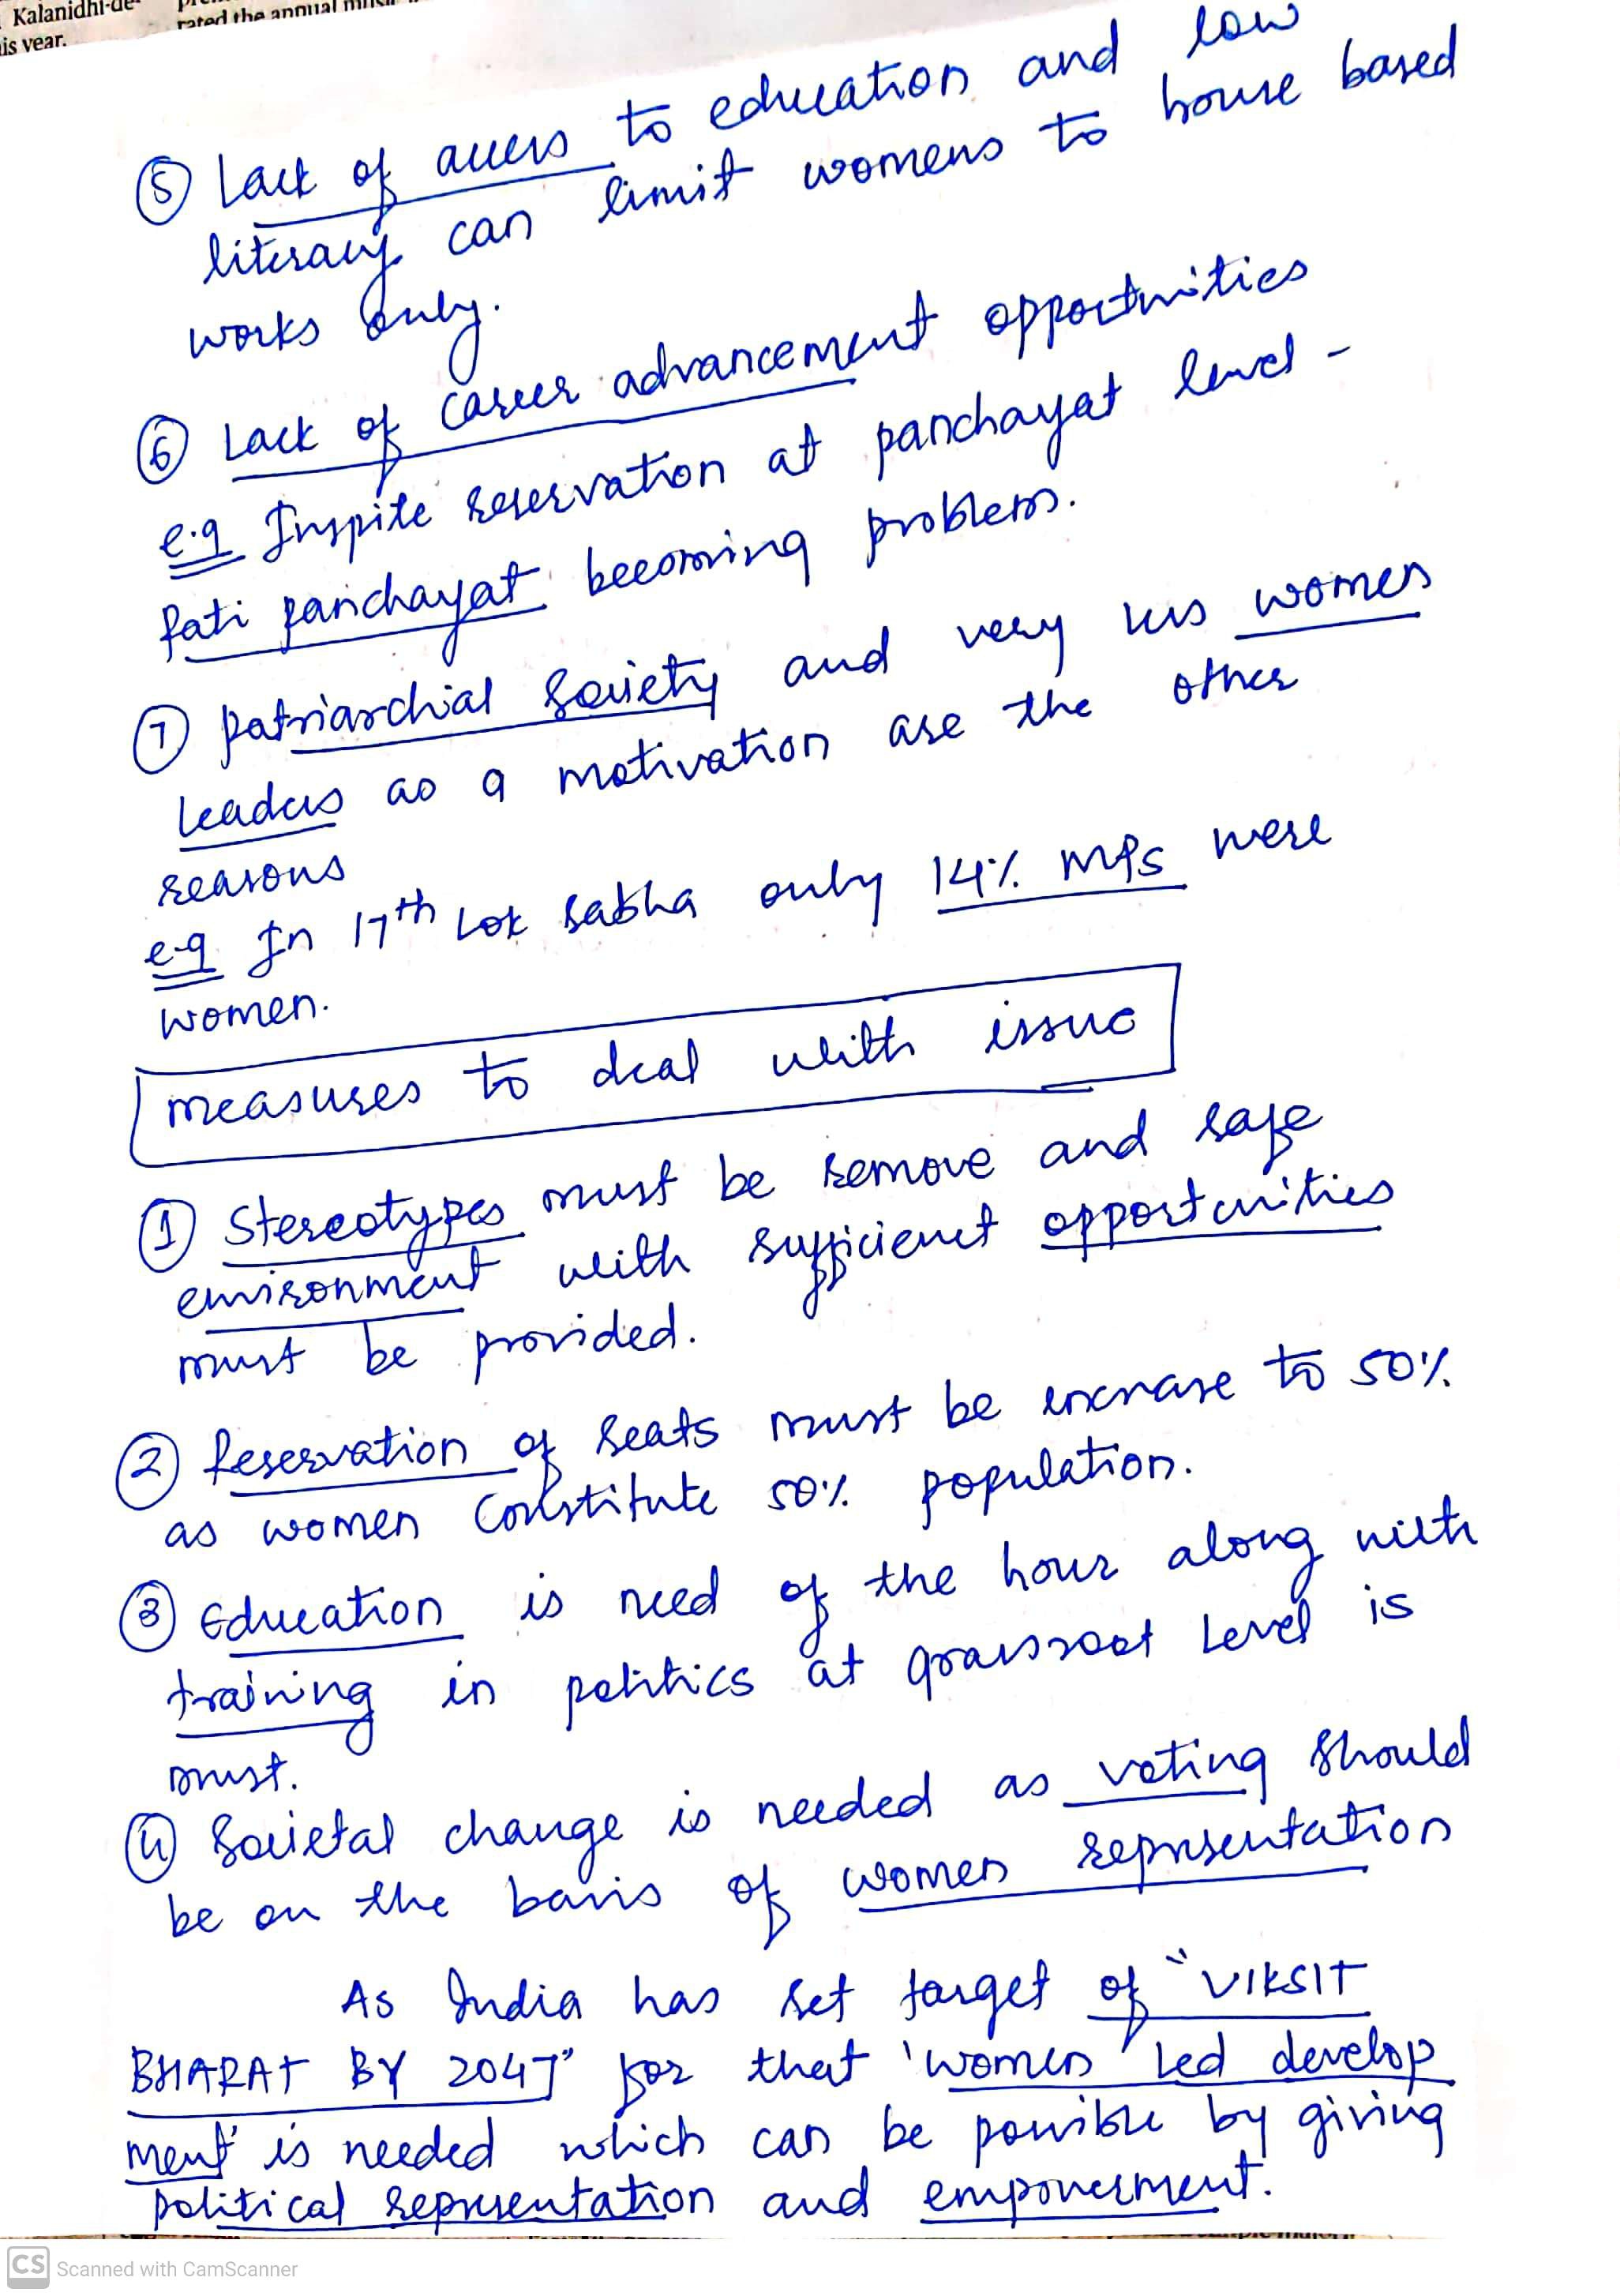 Kalanidhi-de-
is year.
rated the annual
⑤ Lack of access to education and low
literacy can limit womens to house based
works only.
⑥ Lack of career advancement opportunities
e.g Inspite reservation at panchayat level -
Pati panchayat becoming problem.
⑦ patriarchial society and very less women
leaders as a motivation are the other
reasons
e.g In 17th Lok Sabha only 14% MPs were
women.
measures to deal with issue
① Stereotypes must be remove and safe
environment with sufficienct opportunities
must be provided.
② Reservation of seats must be increase to 50%
as women constitute 50% population.
③ Education is need of the hour along with
training in politics at grassroot level is
must.
④ Societal change is needed as voting should
be on the basis of women representation
As India has set target of "VIKSIT
BHARAT BY 2047" for that 'women led develop
ment' is needed which can be possible by giving
political representation and empowerment.
CS Scanned with CamScanner